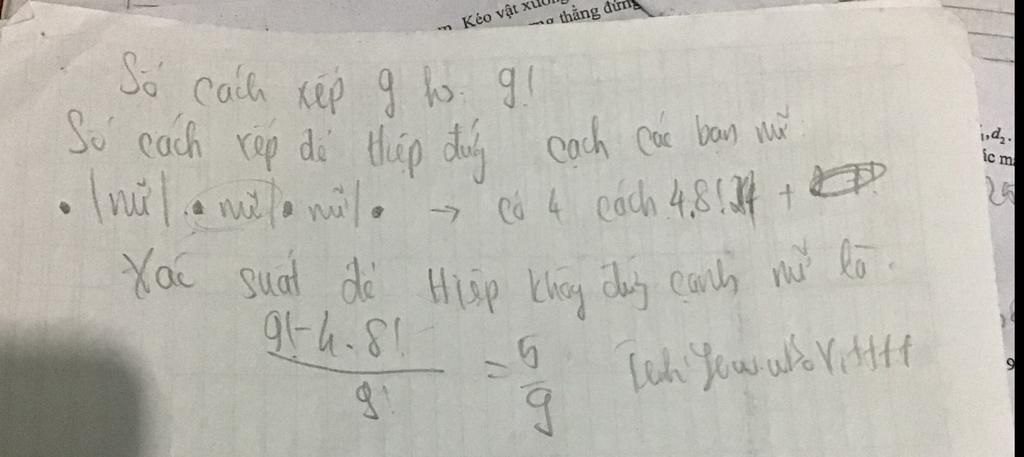 Kéo vật xuống
thẳng đứng
Số cách xếp 9 hs: 9!
Số cách xếp để Hiệp đứng cạch các bạn nữ:
. |nữ| . nữ| . nữ| . → có 4 cách 4.8! +
Xác suất để Hiệp không đứng cạnh nữ là.
9! - 4.8! / 9! = 5/9
,d₂.
íc m
25
9